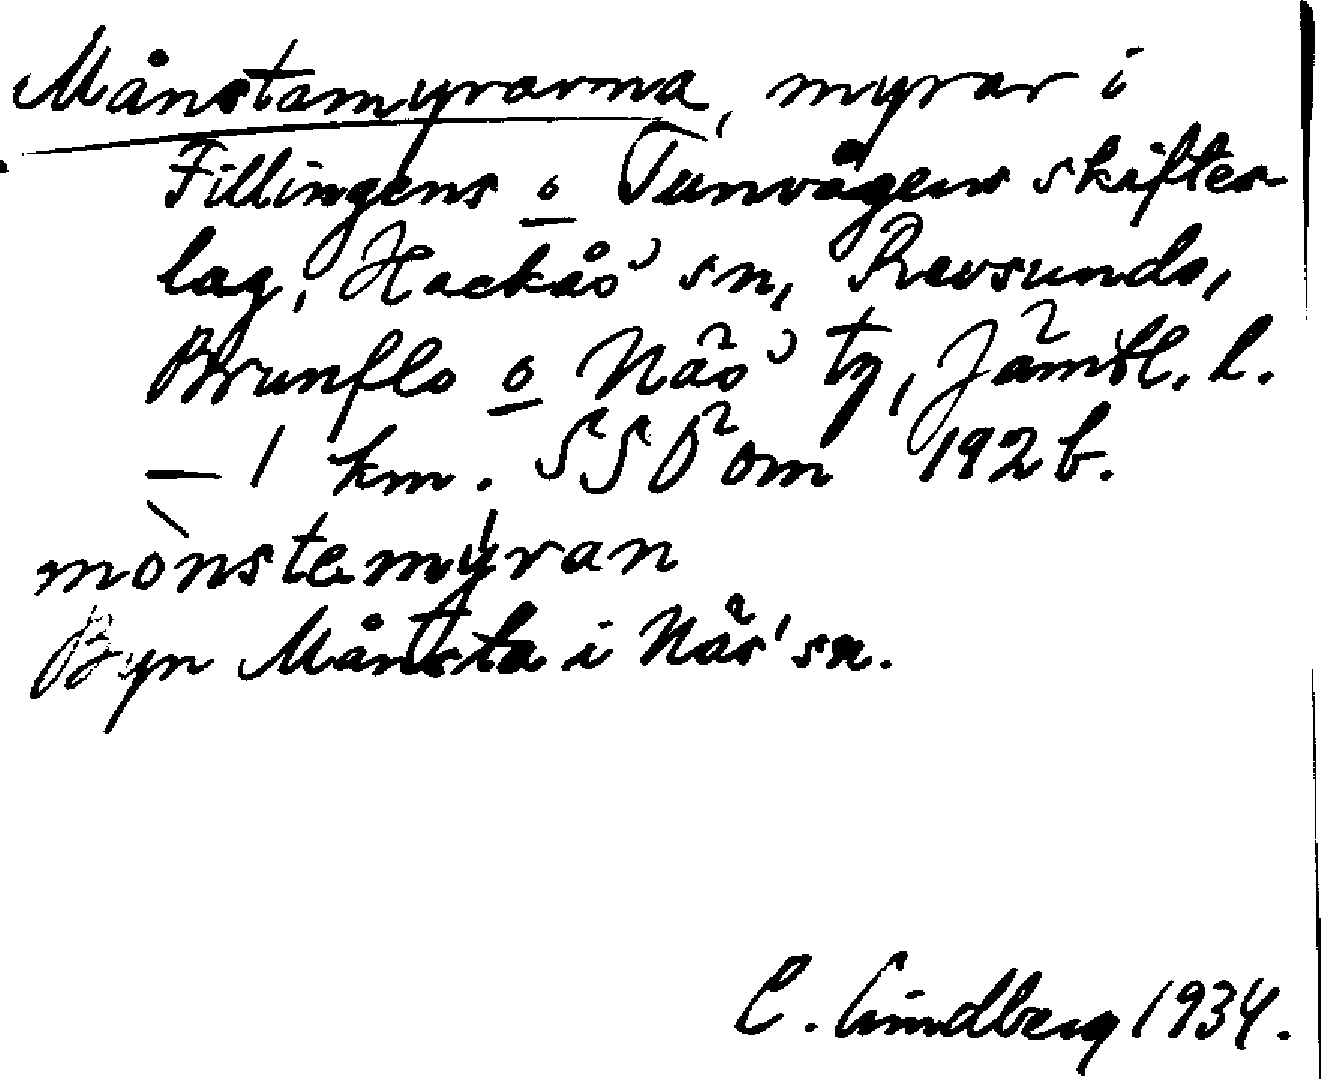 Månstamyrarna, myrar i
Fillingens o Tunvågens skiftes-
lag, Hackås' sn, Revsunds,
Brunflo o Näs' tg, Jämtl. l.
— 1 km. SSÖ om 192 b.
mònstemýran
Byn Månsta i Näs' sn.
C. Lindberg 1934.